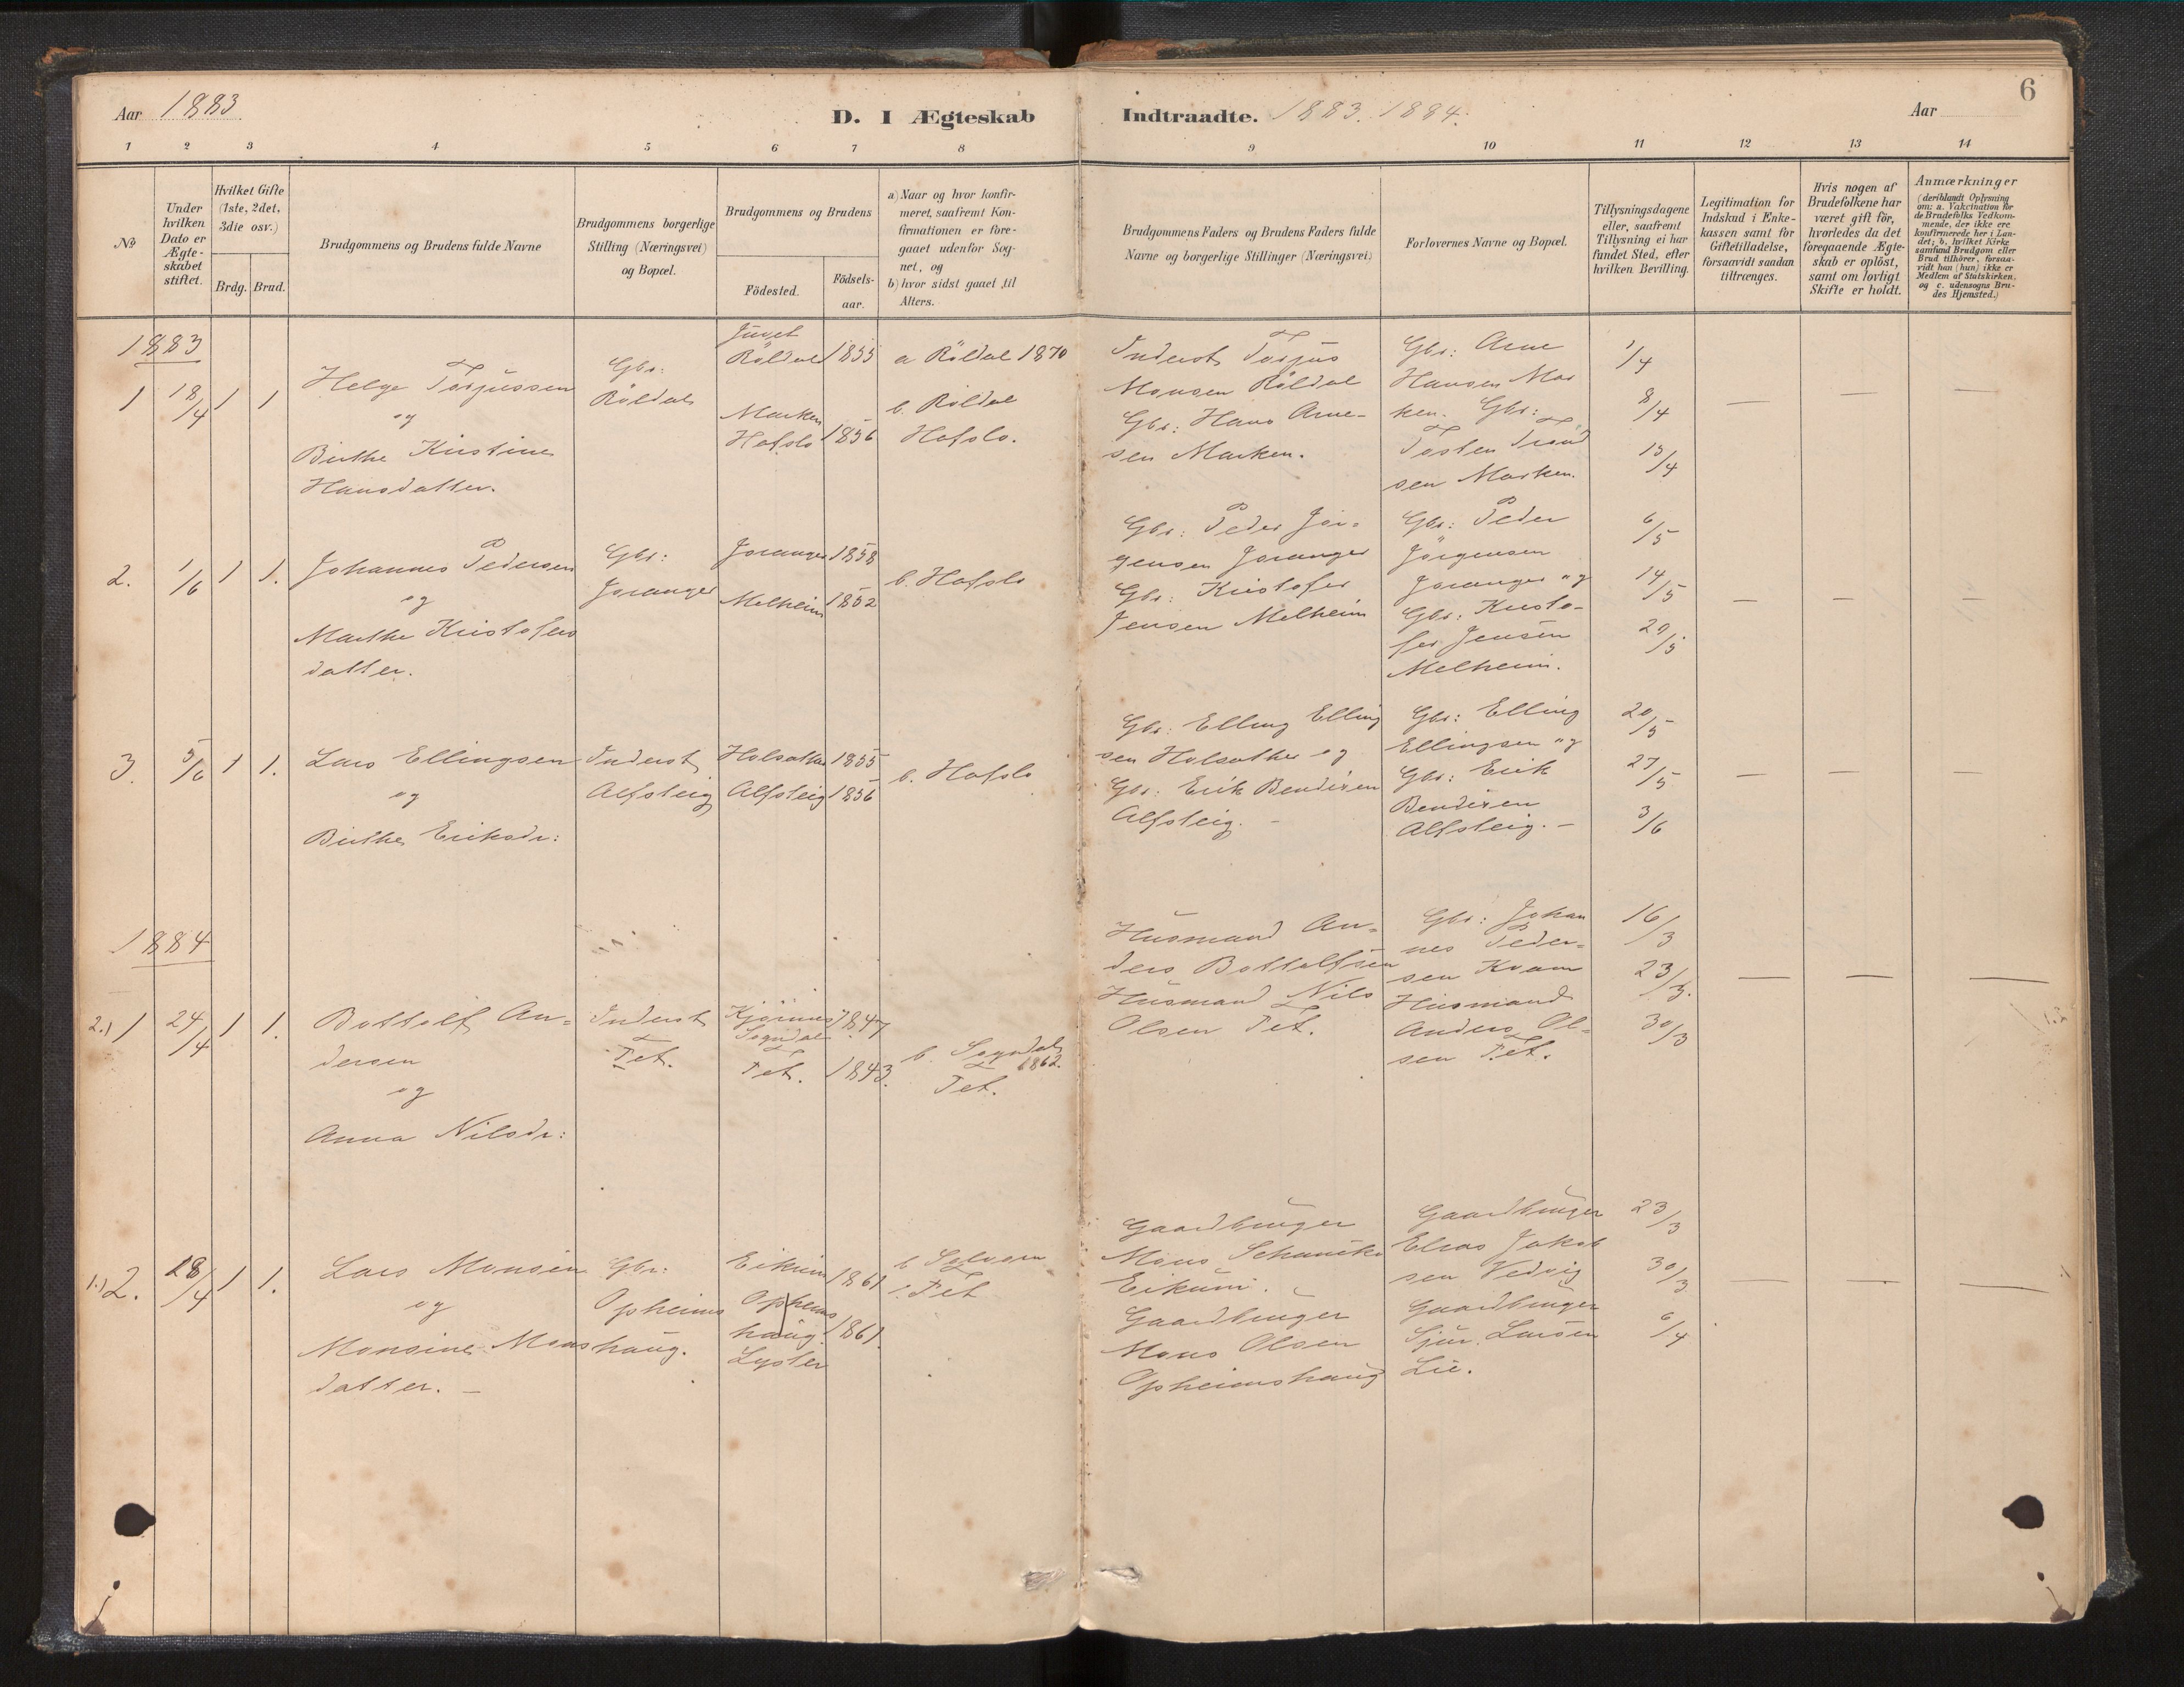 6
Aar 1883
D. I Ægteskab
Indtraadte. 1883. 1884.
Aar
1 2 3 4 5 6 7 8
9 10 11 12 13 14
No
Under hvilken Dato er Ægteskabet stiftet.
Hvilket Gifte (1ste, 2det, 3die osv.)
Brdg. Brud.
Brudgommens og Brudens fulde Navne
Brudgommens borgerlige Stilling (Næringsvei) og Bopæl.
Brudgommens og Brudens
Födested.
Födsels-aar.
a) Naar og hvor konfir-
meret, saafremt Kon-
firmationen er fore-
gaaet udenfor Sog-
net, og
b) hvor sidst gaaet til
Alters.
Brudgommens Faders og Brudens Faders fulde
Navne og borgerlige Stillinger (Næringsvei)
Forlovernes Navne og Bopæl.
Tillysningsdagene
eller, saafremt
Tillysning ei har
fundet Sted, efter
hvilken Bevilling.
Legitimation for
Indskud i Enke-
kassen samt for
Giftetilladelse,
forsaavidt saadan
tiltrænges.
Hvis nogen af
Brudefolkene har
været gift för,
hvorledes da det
foregaaende Ægte-
skab er oplöst,
samt om lovligt
Skifte er holdt.
Anmærkninger
(deriblandt Oplysning
om: a. Vakcination for
de Brudefolks Vedkom-
mende, der ikke ere
konfirmerede her i Lan-
det; b. hvilket Kirke
samfund Brudgom eller
Brud tilhörer, forsaa-
vidt han (hun) ikke er
Medlem af Statskirken.
og c. udensogns Bru-
des Hjemsted.)
1883
1 18/4 1 1
Helge Torjussen
og
Birthe Kristine
Hansdatter.
Gbr:
Röldal
Juvet
Röldal 1855
Marken
Hafslo 1856
a Röldal 1870
b. Röldal
Hafslo.
Inderst Torjus
Monsen Röldal
Gbr: Hans Arne-
sen Marken.
Gbr: Arne
Hansen Mar
ken. Gbr:
Tosten Trond
sen Marken.
1/4
8/4
15/4
— — —
2. 1/6 1 1.
Johannes Pedersen
og
Marthe Kristofers
datter.
Gbr:
Joranger
Joranger 1858
Melheim 1852
b. Hafslo
Gbr: Peder Jör-
gensen Joranger
Gbr: Kristofer
Jensen Melheim
Gbr: Peder
Jörgensen
Joranger og
Gbr: Kristo-
fer Jensen
Melheim.
6/5
14/5
20/5
— — —
3. 5/6 1 1.
Lars Ellingsen
og
Birthe Eriksdr:
Inderst
Alfsteig
Holsæther 1855
Alfsteig 1856
b. Hafslo
Gbr: Elling Elling
sen Holsæther og
Gbr: Erik Bendixen
Alfsteig. –
Gbr: Elling
Ellingsen og
Gbr: Erik
Bendixen
Alfsteig. –
20/5
27/5
3/6
— — —
1884
2.) 1 24/4 1 1.
Bottolf An-
dersen
og
Anna Nilsdr:
Inderst
Fet.
Kjörnæs 1847
Sogndal
Fet. 1843.
b. Sogndal
1862.
Fet.
Husmand An-
ders Bottolfsen
Husmand Nils
Olsen Fet.
Gbr: Johan
nes Peder-
sen Kvam
Husmand
Anders Ol-
sen Fet.
16/3
23/3.
30/3
— — —
1.) 2. 28/4 1 1.
Lars Monsen
og
Monsine Mons
datter. –
Gbr:
Opheims
haug.
Eikum 1861
Opheims
haug. 1861.
Lyster
b Solvorn
Fet
Gaardbruger
Mons
Eikum.
Gaardbruger
Mons Olsen
Opheimshaug
Gaardbruger
Elias Jakob
sen Vedvig
Gaardbruger
Sjur Larsen
Lie.
23/3
30/3
6/4
— — —